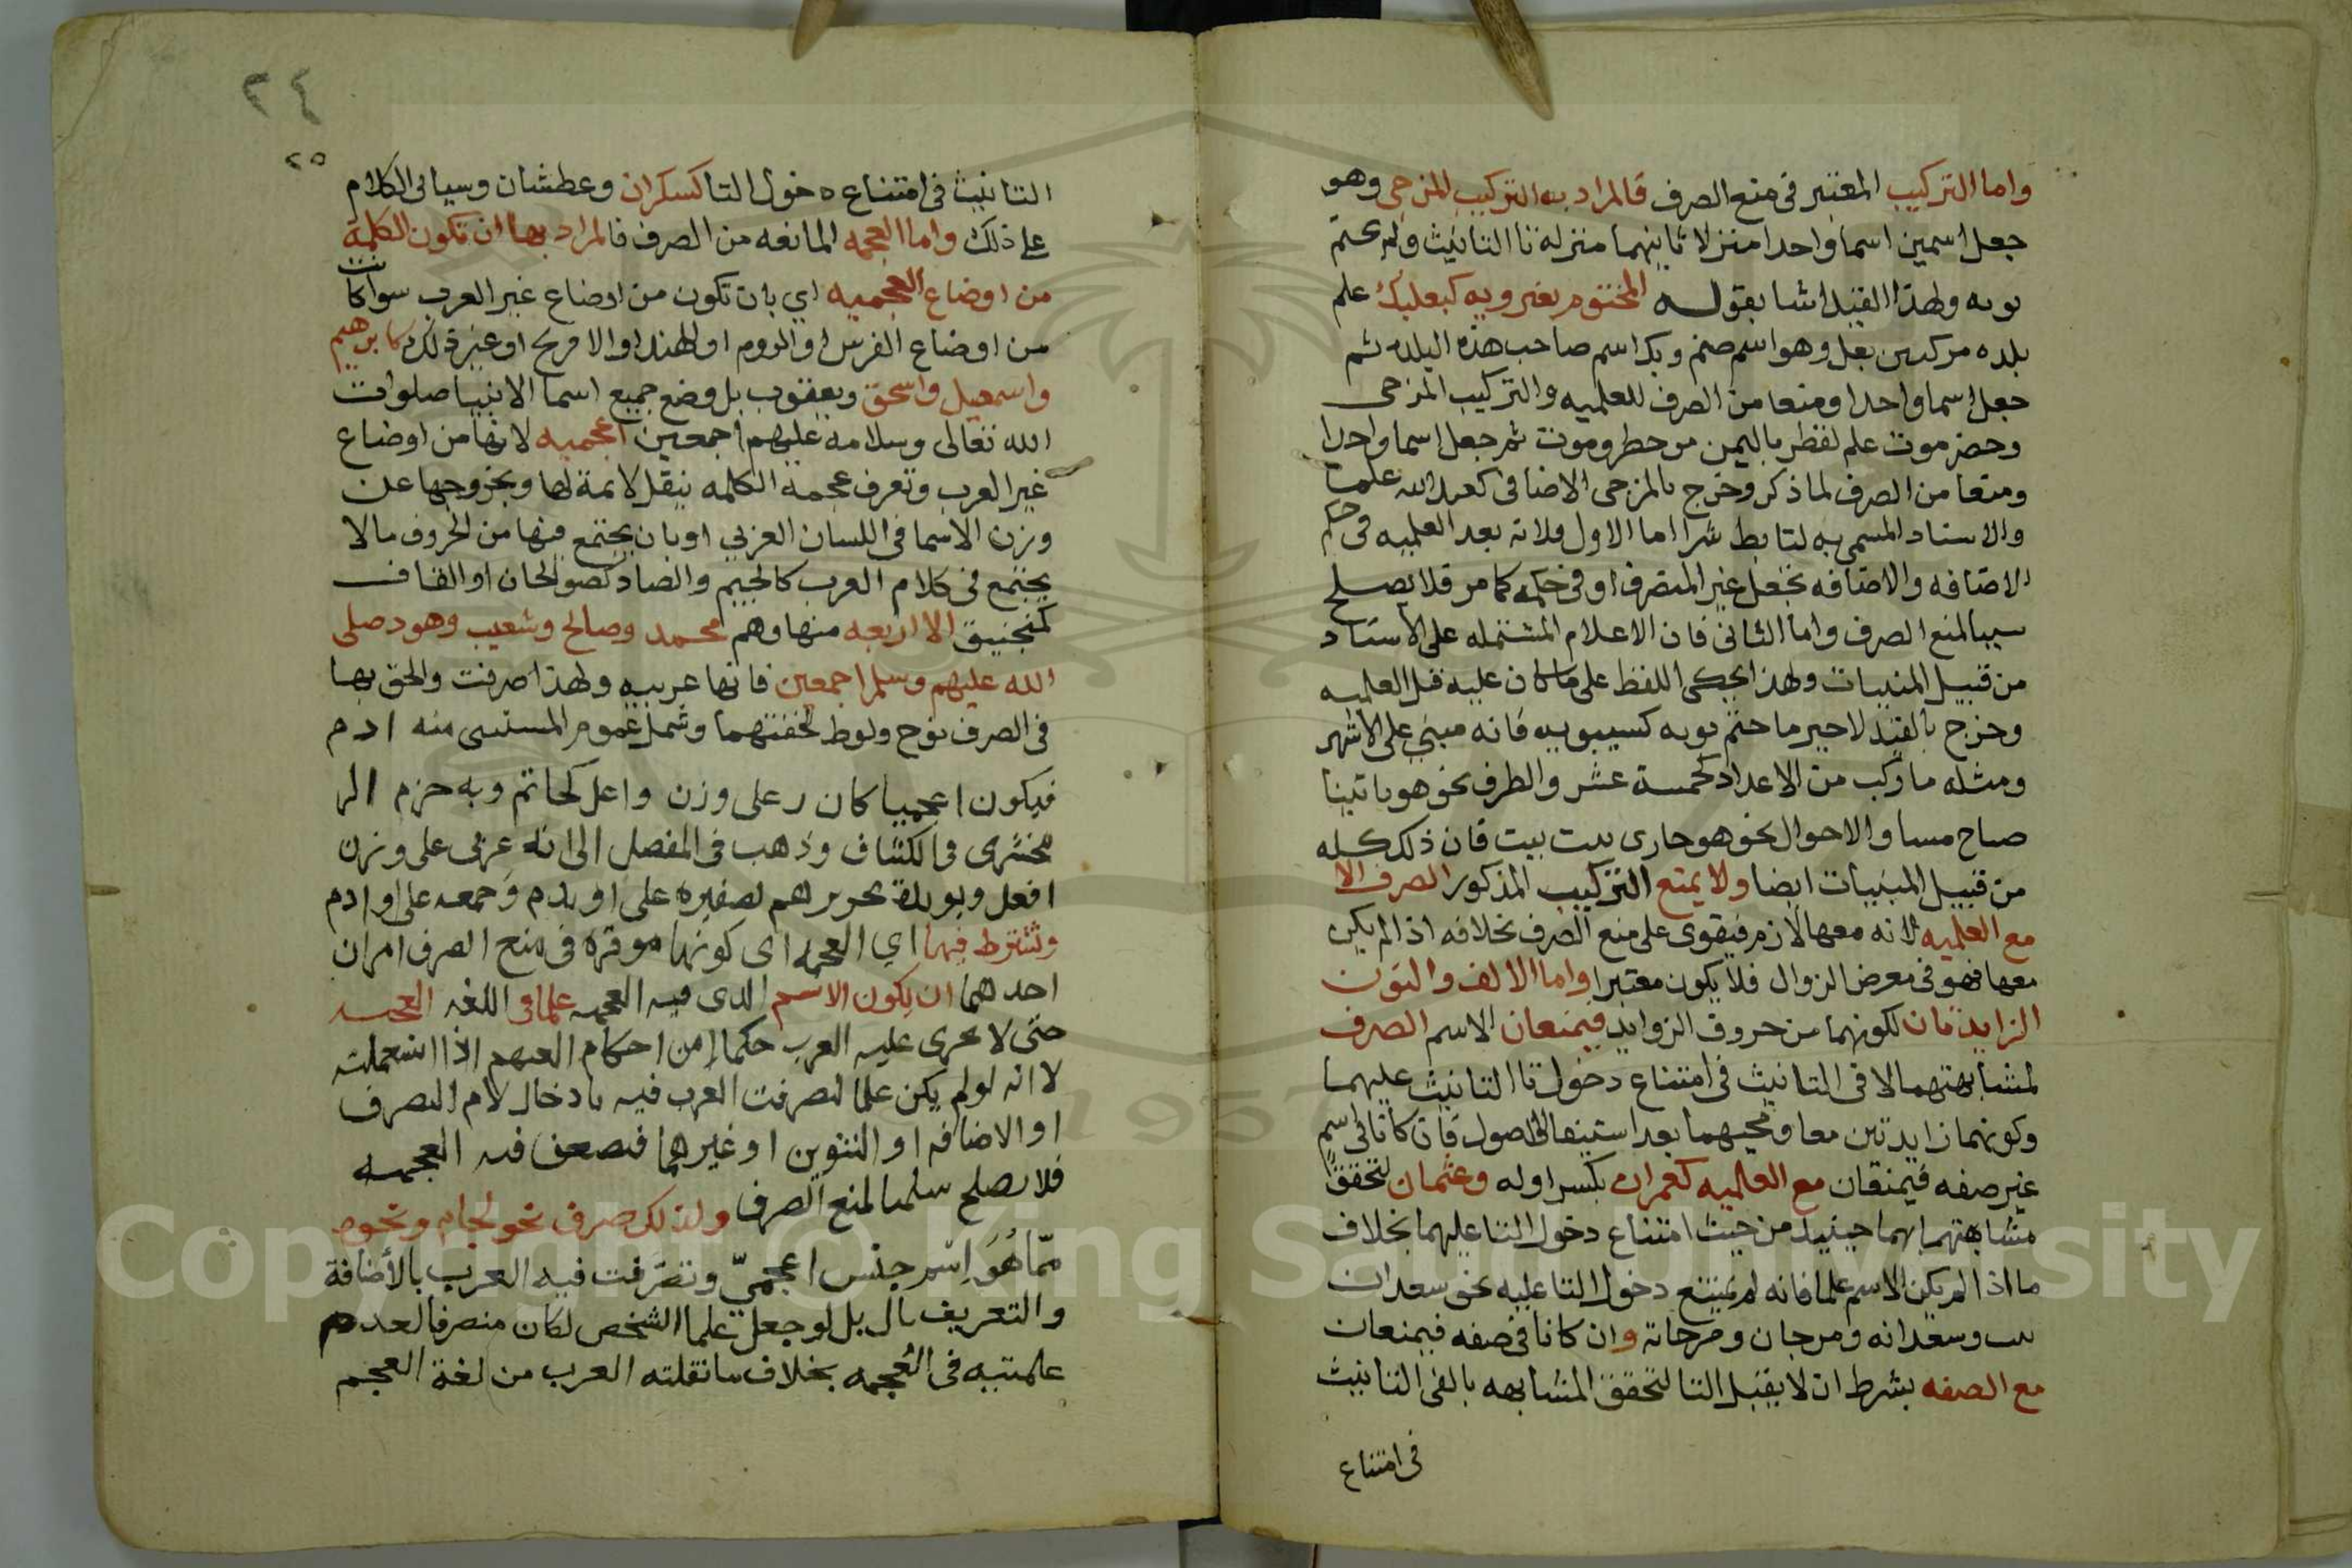 واما التركيب المعتبر فى منع الصرف فالمراد به التركيب المزجى وهو
جعل اسمين اسما واحدا منزلا ثانيهما منزلة تا التانيث ولم يختم
بويه ولهذا القيد اشار بقوله المختوم بغير ويه كبعلبك علم
بلده مركب من بعل وهو اسم صنم وبك اسم صاحب هذه البلده ثم
جعل اسما واحدا ومنعا من الصرف للعلميه والتركيب المزجى
وحضرموت علم لقطر باليمن من حضر وموت ثم جعل اسما واحدا
ومنعا من الصرف لما ذكر وخرج بالمزجى الاضافى كعبد الله علما
والاسناد المسمى به لتابط شرا اما الاول فلانه بعد العلميه فى حكم
الاضافه والاضافه تجعل غير المنصرف او فى حكمه كما مر فلا يصلح
سببا لمنع الصرف واما الثانى فان الاعلام المشتمله على الاسناد
من قبيل المبنيات ولهذا يحكى اللفظ على ما كان عليه قبل العلميه
وخرج بالقيد لاخير ما ختم بويه كسيبويه فانه مبني على الاشهر
ومثله ما ركب من الاعداد كخمسة عشر والظرف نحو هو ياتينا
صباح مسا والاحوال نحو هو جارى بيت بيت فان ذلك كله
من قبيل المبنيات ايضا ولا يمنع التركيب المذكور الصرف الا
مع العلميه لانه معها لازم فيقوى على منع الصرف بخلافه اذا لم يكن
معها فهو فى معرض الزوال فلا يكون معتبرا واما الالف والنون
الزايدتان لكونهما من حروف الزوايد فيمنعان الاسم الصرف
لمشابهتهما لالفى التانيث فى امتناع دخول تا التانيث عليهما
وكونهما زايدتين معا ومجيهما بعد استيفا الاصول فان كانا فى اسم
غير صفه فيمنعان مع العلميه كعمران بكسر اوله وعثمان لتحقق
مشابهتهما بهما حينيذ من حيث امتناع دخول التا عليهما بخلاف
ما اذا لم يكن الاسم علما فانه لم يمتنع دخول التا عليه نحو سعدان
نبت وسعدانه ومرجان ومرجانة وان كانا فى صفه فيمنعان
مع الصفه بشرط ان لا يقبل التا لتحقق المشابهه بالفى التانيث
فى امتناع
٢٤
٢٥
التانيث فى امتناع دخول التا كسكران وعطشان وسياتى الكلام
على ذلك واما العجمه المانعه من الصرف فالمراد بها ان تكون الكلمة
من اوضاع العجميه اي بان تكون من اوضاع غير العرب سوا كانت
من اوضاع الفرس او الروم او الهند او الافرنج او غير ذلك كابرهيم
واسمعيل واسحق ويعقوب بل وضع جميع اسما الانبيا صلوات
الله تعالى وسلامه عليهم اجمعين اعجميه لانها من اوضاع
غير العرب وتعرف عجمة الكلمه بنقل لائمة لها وبخروجها عن
وزن الاسما فى اللسان العربي او بان يجتمع فيها من الحروف مالا
يجتمع فى كلام العرب كالجيم والصاد كصولجان او القاف
كمنجنيق الا اربعه منها وهم محمد وصالح وشعيب وهود صلى
الله عليهم وسلم اجمعين فانها عربيه ولهذا صرفت والحق بها
فى الصرف نوح ولوط لخفتهما وشمل عموم المستثنى منه ادم
فيكون اعجميا كان ر على وزن واعل كحاتم وبه جزم الز
مخشرى فى الكشاف وذهب فى المفصل الى انه عربى على وزن
افعل ويويده تصغيره على اويدم وجمعه على اوادم
وتشترط فيها اي العجمه اى كونها موثره فى منع الصرف امران
احدهما ان يكون الاسم الدى فيه العجمه علما فى اللغه العجميه
حتى لا تجرى عليه العرب حكما من احكام اذا استعملته
لا انه لو لم يكن علما لتصرفت العرب فيه بادخال لام التصرف
او الاضافه او التنوين او غيرهما فتضعف فيه العجمه
فلا يصلح سببا لمنع الصرف ولذلك صرف نحو لجام ونحوه
مّما هُوَ اِسْم جنس اعجميّ وتصرّفت فيه العرب بالأضافة
والتعريف بال بل لو جعل علما الشخص لكان منصرفا لعدم
علميته فى العُجمه بخلاف ما نقلته العرب من لغة العجم